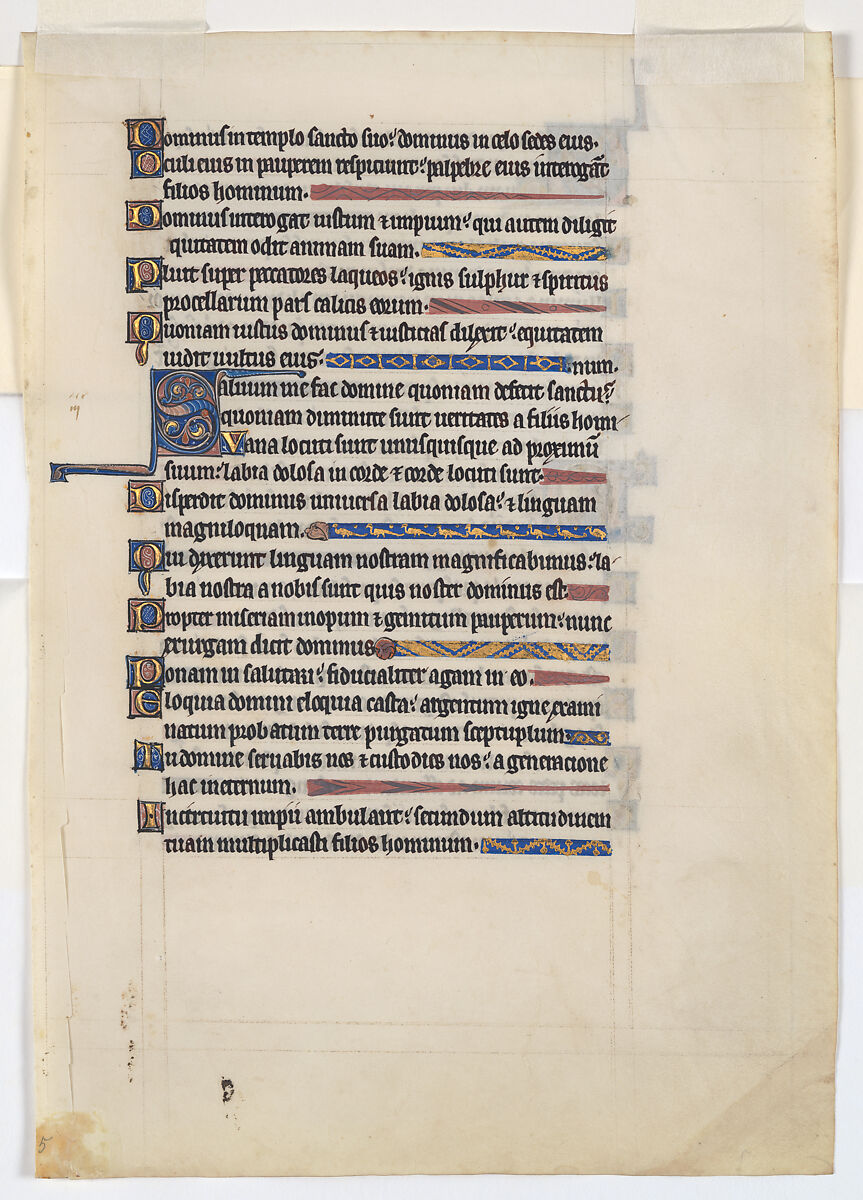 Dominus in templo sancto suo: dominus in celo sedes eius.
Oculi eius in pauperem respiciunt: palpebre eius interogāt
filios hominum.
Dominus interogat iustum ⁊ impium: qui autem diligit
iniquitatem odit animam suam.
Pluit super peccatores laqueos: ignis sulphur ⁊ spiritus
procellarum pars calicis eorum.
Quoniam iustus dominus ⁊ iusticias dilexit: equitatem
uidit uultus eius:
num.
Saluum me fac domine quoniam defecit sanctus:
quoniam diminute sunt ueritates a filiis homi-
Vana locuti sunt unusquisque ad proximū
suum: labia dolosa in corde ⁊ corde locuti sunt.
Disperdit dominus uniuersa labia dolosa: ⁊ linguam
magniloquam.
Qui dixerunt linguam nostram magnificabimus: la-
bia nostra a nobis sunt quis noster dominus est.
Propter miseriam inopum ⁊ gemitum pauperum: nunc
exurgam dicit dominus
Ponam in salutari: fiducialiter agam in eo.
Eloquia domini eloquia casta: argentum igne exami
natum probatum terre purgatum sceptuplum
Tu domine seruabis nos ⁊ custodies nos: a generacione
hac in eternum.
In circuitu impii ambulant: secundum altitudinem
tuam multiplicasti filios hominum.
5